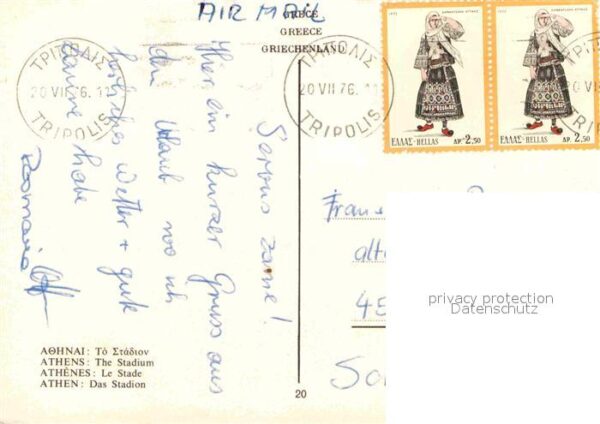 AIR MAIL
GRÈCE
GREECE
GRIECHENLAND
ΤΡΙΠΟΛΙΣ
20 VII 76. 1
TRIPOLIS
ΤΡΙΠΟΛΙΣ
20 VII 76. 1
TRIPOLIS
ΕΛΛΑΣ-HELLAS ΔΡ. 2,50
ΕΛΛΑΣ-HELLAS ΔΡ. 2,50
Servus
Hier ein kurzer Gruss aus
dem Urlaub wo ich
herrliches Wetter + gute
Laune habe
Fran
alte
45
So
privacy protection
Datenschutz
ΑΘΗΝΑΙ: Τό Στάδιον
ATHENS: The Stadium
ATHÈNES: Le Stade
ATHEN: Das Stadion
20